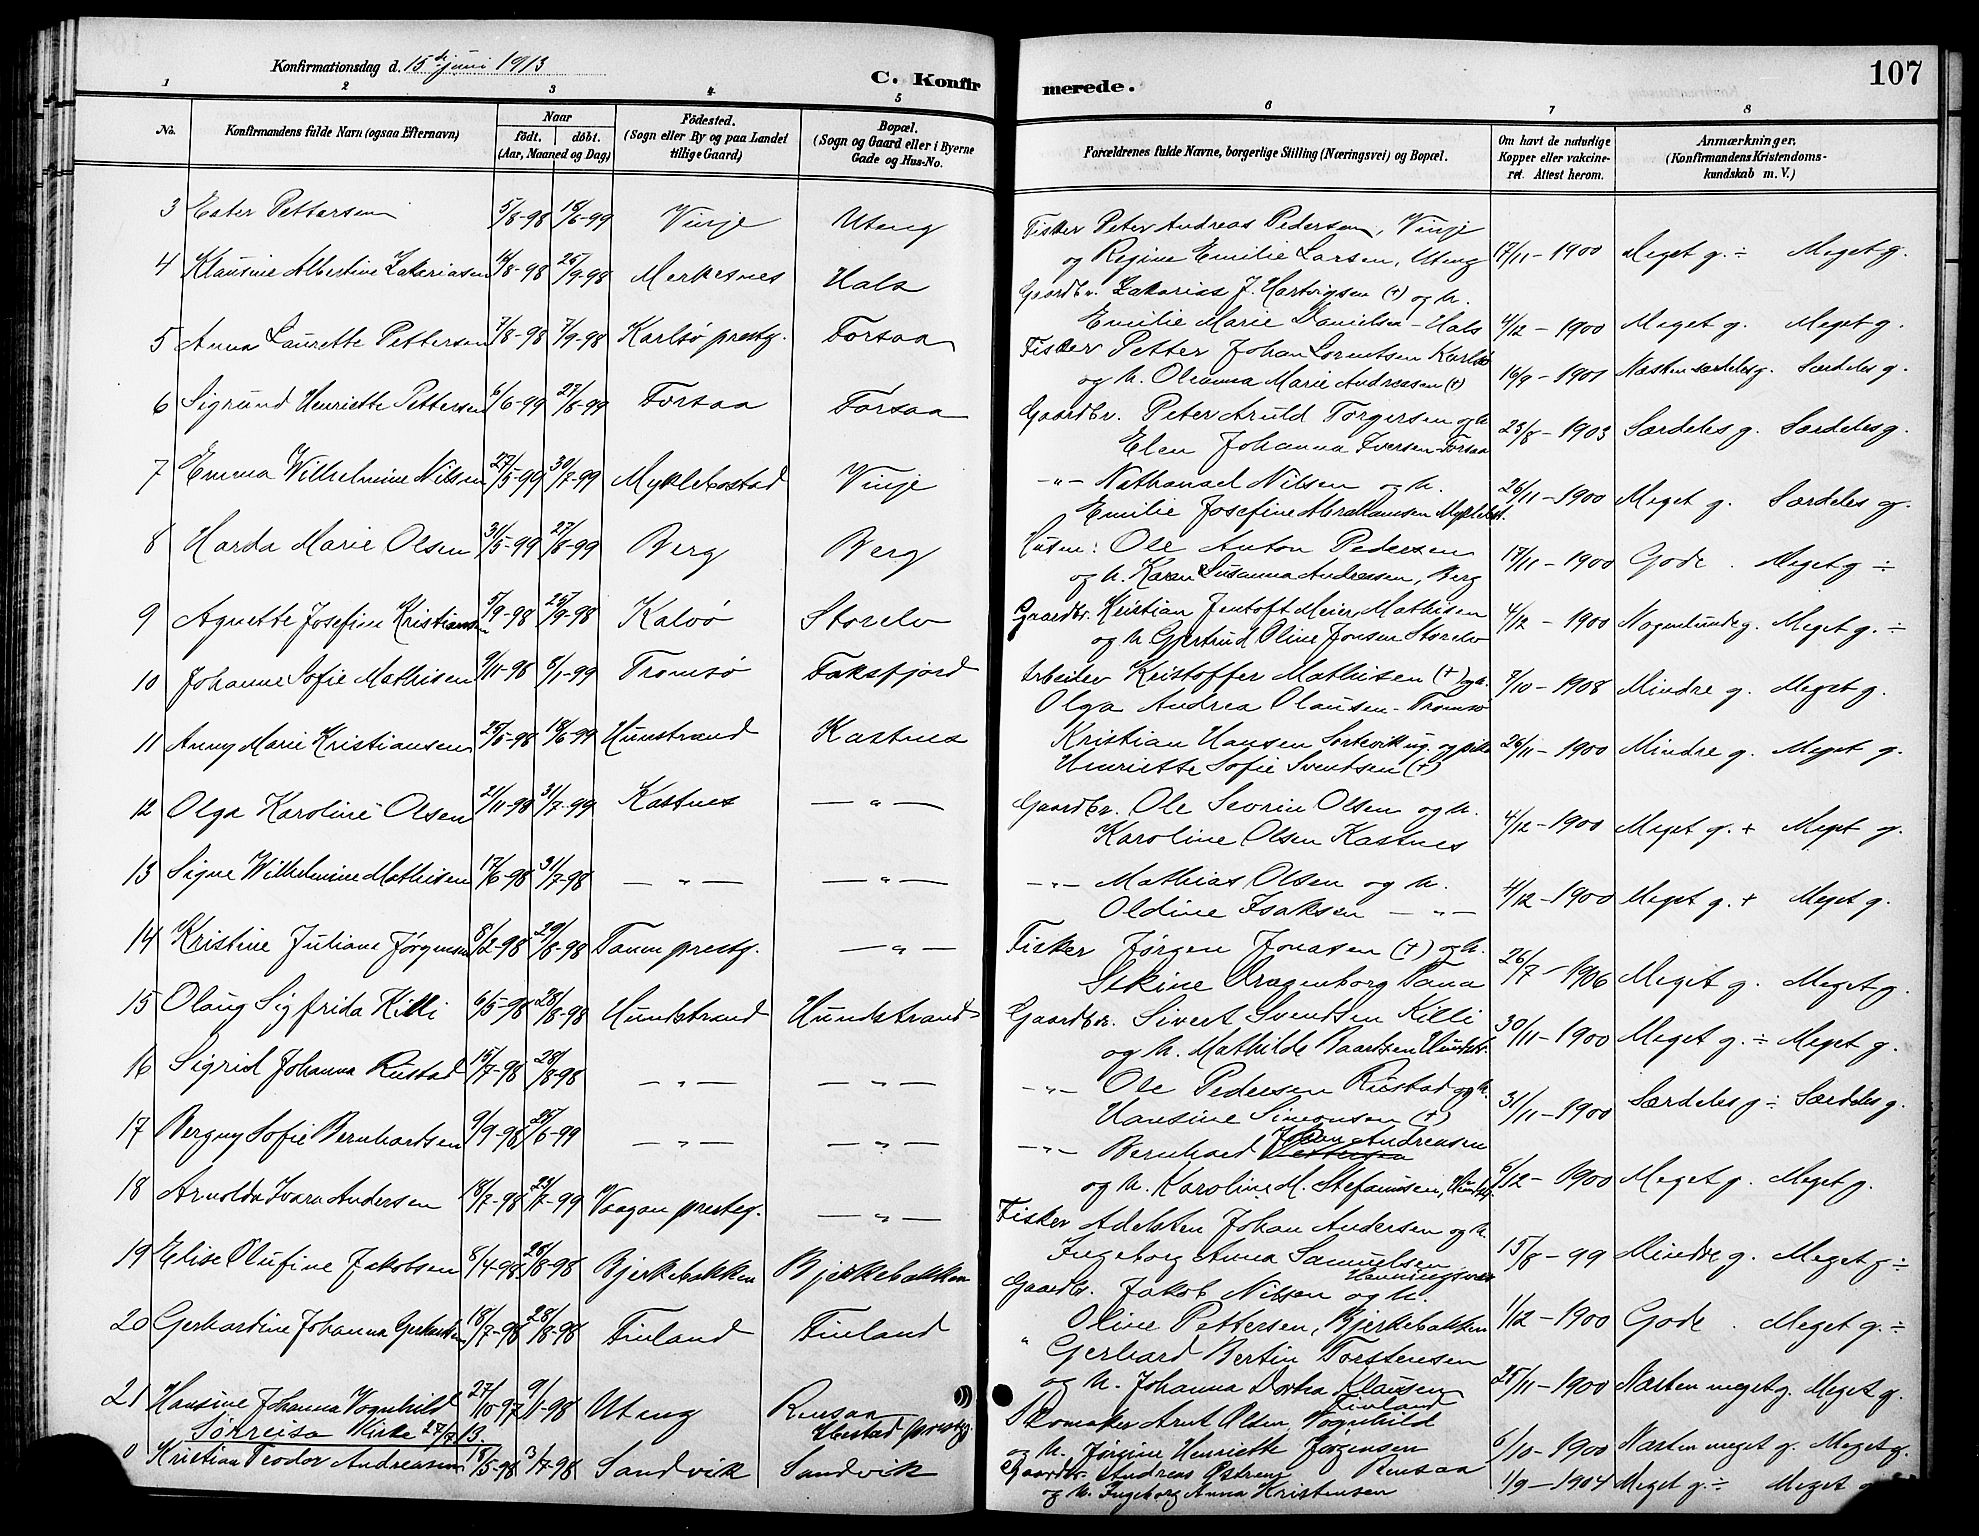 Konfirmationsdag d. 15de juni 1913
C. Konfirmerede.
107
1 2 3 4 5 6 7 8
No.
Konfirmandens fulde Navn (ogsaa Efternavn)
Naar
født. døbt.
(Aar, Maaned og Dag)
Fødested.
(Sogn eller By og paa Landet tillige Gaard)
Bopæl.
(Sogn og Gaard eller i Byerne Gade og Hus-No.
Forældrenes fulde Navne, borgerlige Stilling (Næringsvei) og Bopæl.
Om havt de naturlige Kopper eller vakcineret. Attest herom.
Anmærkninger.
(Konfirmandens Kristendomskundskab m. V.)
3 Ester Pettersen 5/8-98 18/6-99 Vinje Uteng
Fisker Peter Andreas Pedersen, Vinje
og Regine Emilie Larsen, Uteng 17/11-1900 Meget g. ÷ Meget g.
4 Klausine Albertine Zakeriasen 14/8-98 25/9-98 Merkesnes Hals
Gaardbr. Zakarias J. Hartvigsen (+) og h.
Emilie Marie Danielsen - Hals 4/12-1900 Meget g. Meget g.
5 Anna Laurette Pettersen 7/8-98 7/9-98 Karlsø prestg. Forsaa
Fisker Petter Johan Lorentsen Karlsø
og h. Oleanna Marie Andreasen (+) 16/9-1901 Næsten særdeles g. Særdeles g.
6 Sigrund Henriette Pettersen 6/6-99 27/8-99 Forsaa Forsaa
Gaardbr. Peter Aruld Torgersen og h
Elen Johanna Iversen Forsaa 23/8-1903 Særdeles g. Særdeles g.
7 Emma Wilhelmine Nilsen 27/5-99 30/7-99 Myklebostad Vinje
-"- Nathanael Nilsen og h.
Emilie Josefine Abrahamsen Myklebst. 26/11-1900 Meget g. Særdeles g.
8 Harda Marie Olsen 31/5-99 27/8-99 Berg Berg
Husm: Ole Anton Pedersen
og h. Karen Susanna Andreasen, Berg 17/11-1900 Gode. Meget g ÷
9 Agnette Josefine Kristiansen 5/9-98 25/9-98 Kalvø Storelv
Gaardbr. Kristian Jentoft Meier Mathisen
og h Gjertrud Oline Jonsen Storelv 4/12-1900 Nogenlunde g. Meget g. ÷
10 Johanne Sofie Mathisen 9/11-98 8/1-99 Tromsø Faksfjord
Arbeider Kristoffer Mathisen (+) og h.
Olga Andrea Olausen - Tromsø 7/10-1908 Mindre g. Meget g.
11 Anny Marie Kristiansen 25/5-98 18/6-99 Hunstrand Kastnes
Kristian Hansen Sortevik ug. og pike
Henriette Sofie Svendsen (+) 26/11-1900 Mindre g. Meget g.
12 Olga Karoline Olsen 21/11-98 31/7-99 Kastnes — " —
Gaardbr. Ole Sevrin Olsen og h.
Karoline Olsen Kastnes 4/12-1900 Meget g. + Meget g.
13 Signe Wilhelmine Mathisen 17/6-98 31/7-98 — " — — " —
-"- Mathias Olsen og h.
Oldine Isaksen — " — 4/12-1900 Meget g. + Meget g.
14 Kristine Juliane Jørgensen 8/2-98 29/8-98 Tanen prestg. — " —
Fisker Jørgen Jonasen (+) og h.
Sekine Kragenborg Tana 26/7-1906 Meget g. Meget g.
15 Olaug Sigfrida Killi 6/5-98 28/8-98 Hundstrand Hundstrand
Gaardbr. Sivert Svendsen Killi
og h. Mathilde Baardsen Hundstr. 30/11-1900 Meget g. ÷ Meget g.
16 Sigrid Johanna Rustad 15/7-98 28/8-98 — " — — " —
-"- Ole Pedersen Rustad og h.
Hansine Simonsen (+) 31/11-1900 Særdeles g ÷ Særdeles g.
17 Bergny Sofie Bernhardsen 9/9-98 25/6-99 — " — — " —
-"- Bernhard Johan Andreasen
og h. Karoline M. Stefanusen, Hundstr. 6/12-1900 Meget g. Meget g.
18 Arnolda Ivara Andersen 18/2-98 23/7-99 Vaagan prestg. — " —
Fisker Adelsten Johan Andersen og h.
Ingeborg Anna Samuelsen Henningsvær 15/8-99 Mindre g. Meget g ÷
19 Elise Olufine Jakobsen 8/4-98 28/8-98 Bjerkebakken Bjerkebakken
Gaardbr. Jakob Nilsen og h.
Oline Pettersen, Bjerkebakken 1/12-1900 Gode. Meget g. ÷
20 Gerhardine Johanna Gerhardsen 18/7-98 28/8-98 Finland Finland
" Gerhard Bertin Torstensen
og h. Johanna Dortea Klausen Finland 25/11-1900 Næsten meget g. Meget g.
21 Hansine Johanna Vognhild 27/10-97 9/1-98 Uteng Rensaa Ibestad prestg.
Skomaker Arnt Olsen Vognhild
og h. Jørgine Henriette Jørgensen Rensaa 6/10-1900 Næsten meget g. Meget g.
Sørreisa Kirke 27/7 13.
Kristian Teodor Andreasen 18/5-98 3/7-98 Sandvik Sandvik
Gaardbr. Andreas Østreng
og h. Ingeborg Anna Kristensen 1/9-1904 Meget g. ÷ Meget